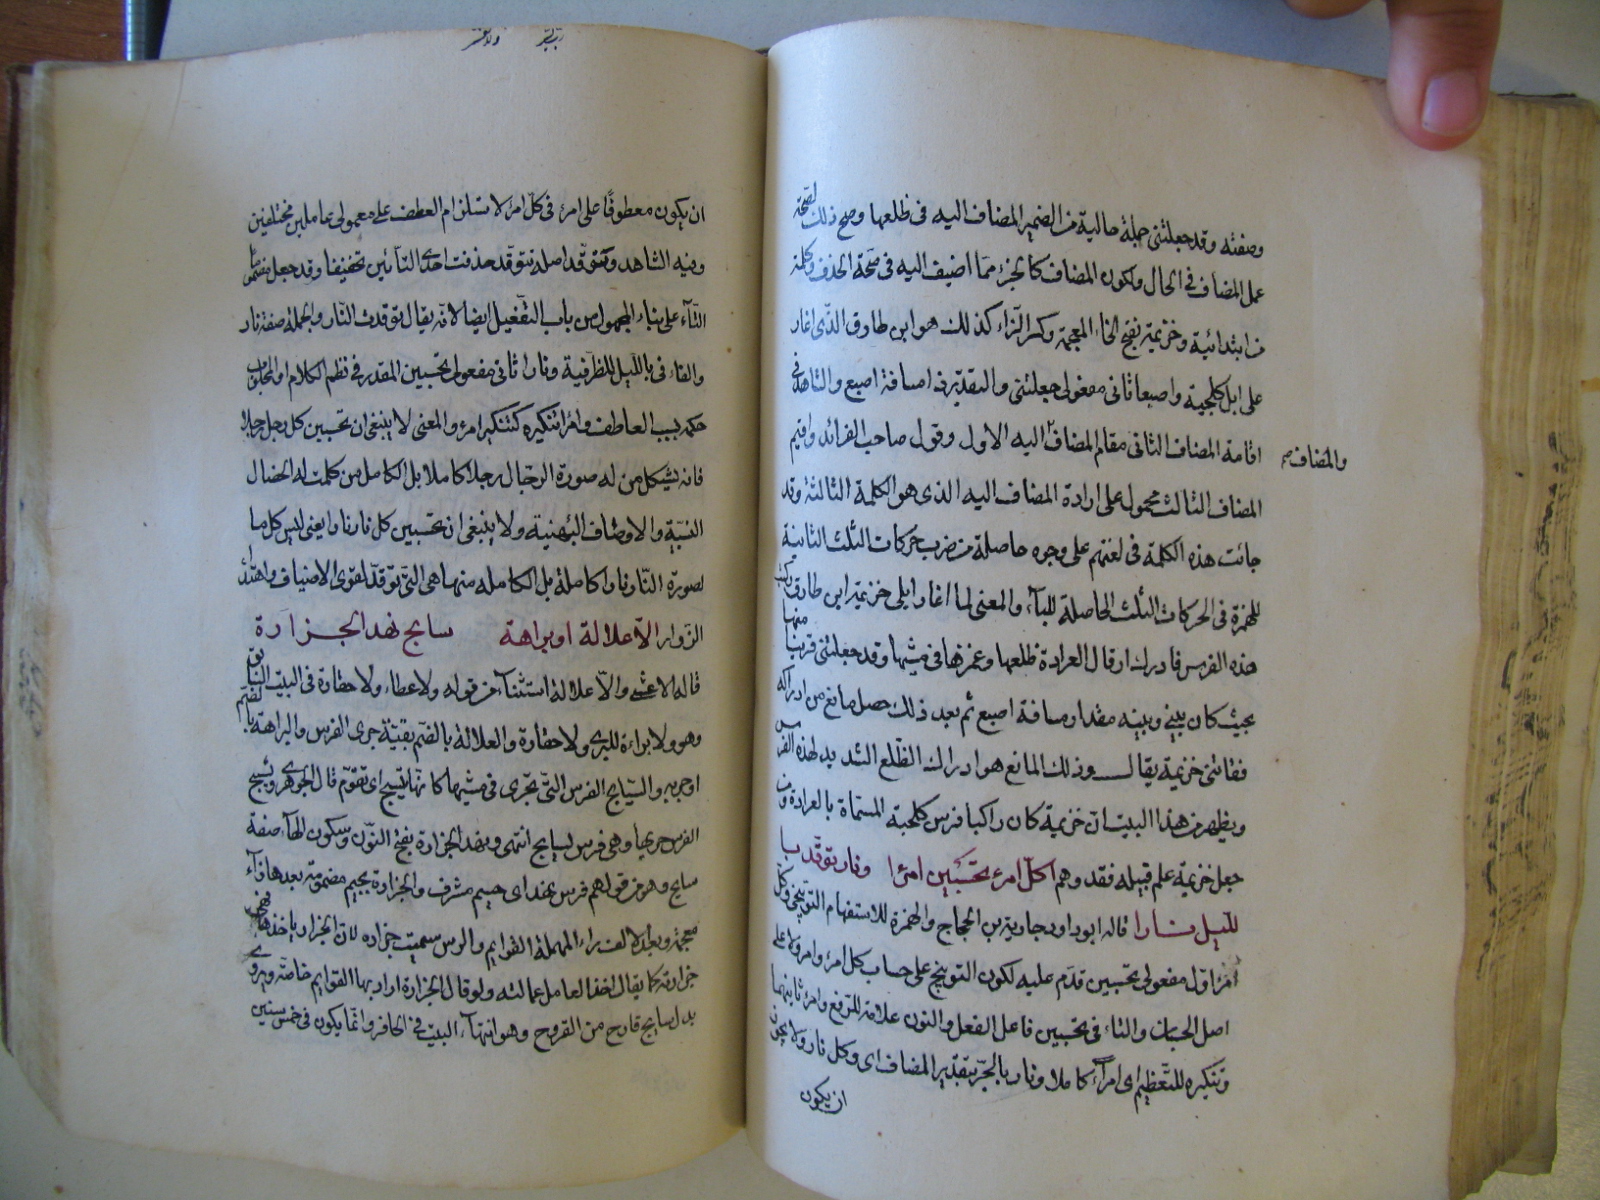 وصفته وقد جعلتنى جملة حالية من الضمير المضاف اليه فى ظلعها وصح ذلك لصحة
عمل المضاف فى الحال ولكون المضاف كالجزء مما اضيف اليه فى صحة الحذف وكلمة
من ابتدائية وخزيمة بفتح الخاء المعجمة وكسر الزاء كذلك هو ابن طارق الذى اغار
على ابل كلحبة واصبعا ثانى مفعولى جعلتنى والتقدير ذا مسافة اصبع والشاهد فى
اقامة المضاف الثانى مقام المضاف اليه الاول وقول صاحب الفرائد واقيم
والمضاف صح
المضاف الثالث محمول على ارادة المضاف اليه الذى هو الكلمة الثالثة وقد
جائت هذه الكلمة فى لغتهم على وجوه حاصلة من ضرب حركات الثلث الثانية
للهمزة فى الحركات الثلث الحاصلة للباء والمعنى لما اغار ابلى خزيمة ابن طارق
هذه الفرس فادرك ارقال العرادة ظلعها وغمزها فى مشيها وقد جعلتنى قريبا منها
بحيث كان بينى وبينه مقدار مسافة اصبع ثم بعد ذلك حصل مانع من ادراكه
ففاتنى خزيمة يقال وذلك المانع هو ادراك الظلع الشديد لهذه الفرس
ويظهر من هذا البيت ان خزيمة كان راكبا فرس كلحبة المسماة بالعرادة ومن
جعل خزيمة علم قبيله فقد وهم اكل امرء تحسبين امرا ونار توقد با
لليل نارا قاله ابو داود جارية بن الحجاج والهمزة للاستفهام التوبيخى وكل
امرء اول مفعولى تحسبين قدم عليه لكون التوبيخ على حساب كل امرء وامرء لا على
اصل الحسبان والتاء فى تحسبين فاعل الفعل والنون علامة للرفع وامرء ثانيهما
وتنكيره للتعظيم اى امرأ كاملا ونار بالجر بتقدير المضاف اى وكل نار ولا يجوز
ان يكون
ان يكون معطوفا على امرء فى كل امرء لاستلزام العطف على معمولى عاملين مختلفين
وفيه الشاهد وتوقد اصله تتوقد حذفت احدى التائين تخفيفا وقد جعل مضموما
التاء على بناء المجهول من باب التفعيل ايضا لانه يقال توقدت النار والجملة صفة نار
والفاء فى بالليل للظرفية ونارا ثانى مفعولى تحسبين المقدر فى نظم الكلام
حكمه بسبب العاطف وامرا تنكيره كتنكير امرء والمعنى لا ينبغى ان تحسبين كل رجل رجلا
فانه يشكل من له صورة الرجال رجلا كاملا بل الكامل من كملت له الخصال
السنية والاوصاف البهنية ولا ينبغى ان تحسبين كل نار نارا يعنى ليس كل ما
لصورة النار نارا كاملة بل الكاملة منها هى التى توقد لقوى الاضياف واهتداء
الزوار الا علالة او بداهة سابح نهد الجزارة
قاله الاعشى والا علالة استثناء من قوله ولا عطاء ولا حقارة فى البيت السابق
وهو ولا براءة للبرى ولا حقارة والعلالة بالضم بقية جرى الفرس والبداهة بالضم
اوجريه والسابح الفرس التى تجرى فى مشيها كانها تسبح اى تقوم قال الجوهرى وسبح
الفرس جريها وهى فرس لسابح انتهى ونهد الجزارة بفتح النون وسكون الهاء صفة
سابح وهو من قولهم فرس نهد اى جسيم مشرف والجزارة بجيم مضمومة بعدها زاء
معجمة وبعد الالف راء المهملة القوايم والراس سميت جزارة لان الجزار ياخذها فهى
جزارته كما يقال اخذ العامل عمالته ولو قال الجزارة اراد بها القوايم خاصة ويروى
بدل سابح قارح من القروح وهو انتهاء البيت فى الحافر وانما يكون فى خمس سنين